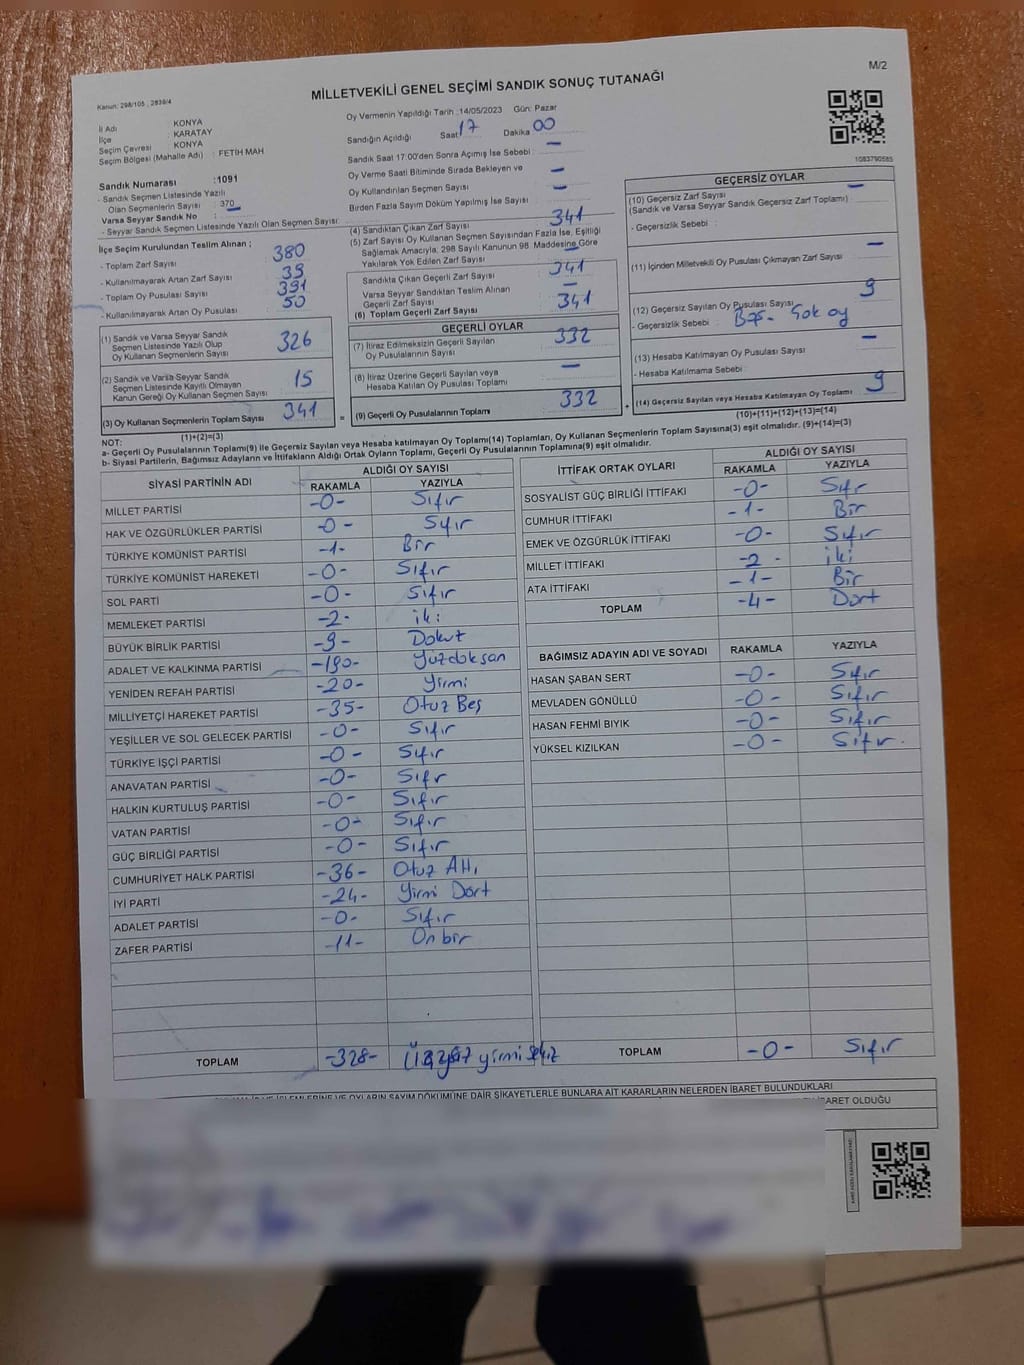 M/2
MİLLETVEKİLİ GENEL SEÇİMİ SANDIK SONUÇ TUTANAĞI
Kanun: 298/105 , 2839/4
İl Adı : KONYA
İlçe : KARATAY
Seçim Çevresi : KONYA
Seçim Bölgesi (Mahalle Adı) : FETİH MAH
Sandık Numarası :1091
- Sandık Seçmen Listesinde Yazılı
Olan Seçmenlerin Sayısı : 370
Varsa Seyyar Sandık No :
- Seyyar Sandık Seçmen Listesinde Yazılı Olan Seçmen Sayısı:
Oy Vermenin Yapıldığı Tarih :14/05/2023 Gün: Pazar
Sandığın Açıldığı Saat 17 Dakika 00
Sandık Saat 17:00'den Sonra Açmış İse Sebebi : -
Oy Verme Saati Bitiminde Sırada Bekleyen ve
Oy Kullandırılan Seçmen Sayısı : -
Birden Fazla Sayım Döküm Yapılmış İse Sayısı : -
1083790585
İlçe Seçim Kurulundan Teslim Alınan ;
- Toplam Zarf Sayısı 380
- Kullanılmayarak Artan Zarf Sayısı 39
- Toplam Oy Pusulası Sayısı 391
- Kullanılmayarak Artan Oy Pusulası 50
(1) Sandık ve Varsa Seyyar Sandık
Seçmen Listesinde Yazılı Olup
Oy Kullanan Seçmenlerin Sayısı 326
(2) Sandık ve Varsa Seyyar Sandık
Seçmen Listesinde Kayıtlı Olmayan
Kanun Gereği Oy Kullanan Seçmen Sayısı 15
(3) Oy Kullanan Seçmenlerin Toplam Sayısı 341 =
(1)+(2)=(3)
(4) Sandıktan Çıkan Zarf Sayısı 341
(5) Zarf Sayısı Oy Kullanan Seçmen Sayısından Fazla İse, Eşitliği
Sağlamak Amacıyla; 298 Sayılı Kanunun 98. Maddesine Göre
Yakılarak Yok Edilen Zarf Sayısı -
Sandıkta Çıkan Geçerli Zarf Sayısı 341
Varsa Seyyar Sandıktan Teslim Alınan
Geçerli Zarf Sayısı -
(6) Toplam Geçerli Zarf Sayısı 341
GEÇERLİ OYLAR
(7) İtiraz Edilmeksizin Geçerli Sayılan
Oy Pusulalarının Sayısı 332
(8) İtiraz Üzerine Geçerli Sayılan veya
Hesaba Katılan Oy Pusulası Toplamı -
(9) Geçerli Oy Pusulalarının Toplamı 332 +
GEÇERSİZ OYLAR
(10) Geçersiz Zarf Sayısı -
(Sandık ve Varsa Seyyar Sandık Geçersiz Zarf Toplamı)
- Geçersizlik Sebebi :
(11) İçinden Milletvekili Oy Pusulası Çıkmayan Zarf Sayısı -
(12) Geçersiz Sayılan Oy Pusulası Sayısı 9
- Geçersizlik Sebebi : Boş - Çok oy
(13) Hesaba Katılmayan Oy Pusulası Sayısı -
- Hesaba Katılmama Sebebi :
(14) Geçersiz Sayılan veya Hesaba Katılmayan Oy Toplamı 9
(10)+(11)+(12)+(13)=(14)
NOT:
a- Geçerli Oy Pusulalarının Toplamı(9) ile Geçersiz Sayılan veya Hesaba katılmayan Oy Toplamı(14) Toplamları, Oy Kullanan Seçmenlerin Toplam Sayısına(3) eşit olmalıdır. (9)+(14)=(3)
b- Siyasi Partilerin, Bağımsız Adayların ve İttifakların Aldığı Ortak Oyların Toplamı, Geçerli Oy Pusulalarının Toplamına(9) eşit olmalıdır.
SİYASİ PARTİNİN ADI ALDIĞI OY SAYISI
RAKAMLA YAZIYLA
MİLLET PARTİSİ -0- Sıfır
HAK VE ÖZGÜRLÜKLER PARTİSİ -0- Sıfır
TÜRKİYE KOMÜNİST PARTİSİ -1- Bir
TÜRKİYE KOMÜNİST HAREKETİ -0- Sıfır
SOL PARTİ -0- Sıfır
MEMLEKET PARTİSİ -2- iki
BÜYÜK BİRLİK PARTİSİ -9- Dokuz
ADALET VE KALKINMA PARTİSİ -190- Yüzdoksan
YENİDEN REFAH PARTİSİ -20- Yirmi
MİLLİYETÇİ HAREKET PARTİSİ -35- Otuz Beş
YEŞİLLER VE SOL GELECEK PARTİSİ -0- Sıfır
TÜRKİYE İŞÇİ PARTİSİ -0- Sıfır
ANAVATAN PARTİSİ -0- Sıfır
HALKIN KURTULUŞ PARTİSİ -0- Sıfır
VATAN PARTİSİ -0- Sıfır
GÜÇ BİRLİĞİ PARTİSİ -0- Sıfır
CUMHURİYET HALK PARTİSİ -36- Otuz Altı
İYİ PARTİ -24- Yirmi Dört
ADALET PARTİSİ -0- Sıfır
ZAFER PARTİSİ -11- Onbir
TOPLAM -328- yirmi sekiz
İTTİFAK ORTAK OYLARI ALDIĞI OY SAYISI
RAKAMLA YAZIYLA
SOSYALİST GÜÇ BİRLİĞİ İTTİFAKI -0- Sıfır
CUMHUR İTTİFAKI -1- Bir
EMEK VE ÖZGÜRLÜK İTTİFAKI -0- Sıfır
MİLLET İTTİFAKI -2- iki
ATA İTTİFAKI -1- Bir
TOPLAM -4- Dört
BAĞIMSIZ ADAYIN ADI VE SOYADI RAKAMLA YAZIYLA
HASAN ŞABAN SERT -0- Sıfır
MEVLADEN GÖNÜLLÜ -0- Sıfır
HASAN FEHMİ BIYIK -0- Sıfır
YÜKSEL KIZILKAN -0- Sıfır.
TOPLAM -0- Sıfır
VE OYLARIN SAYIM DÖKÜMÜNE DAİR ŞİKAYETLERLE BUNLARA AİT KARARLARIN NELERDEN İBARET BULUNDUKLARI
İBARET OLDUĞU